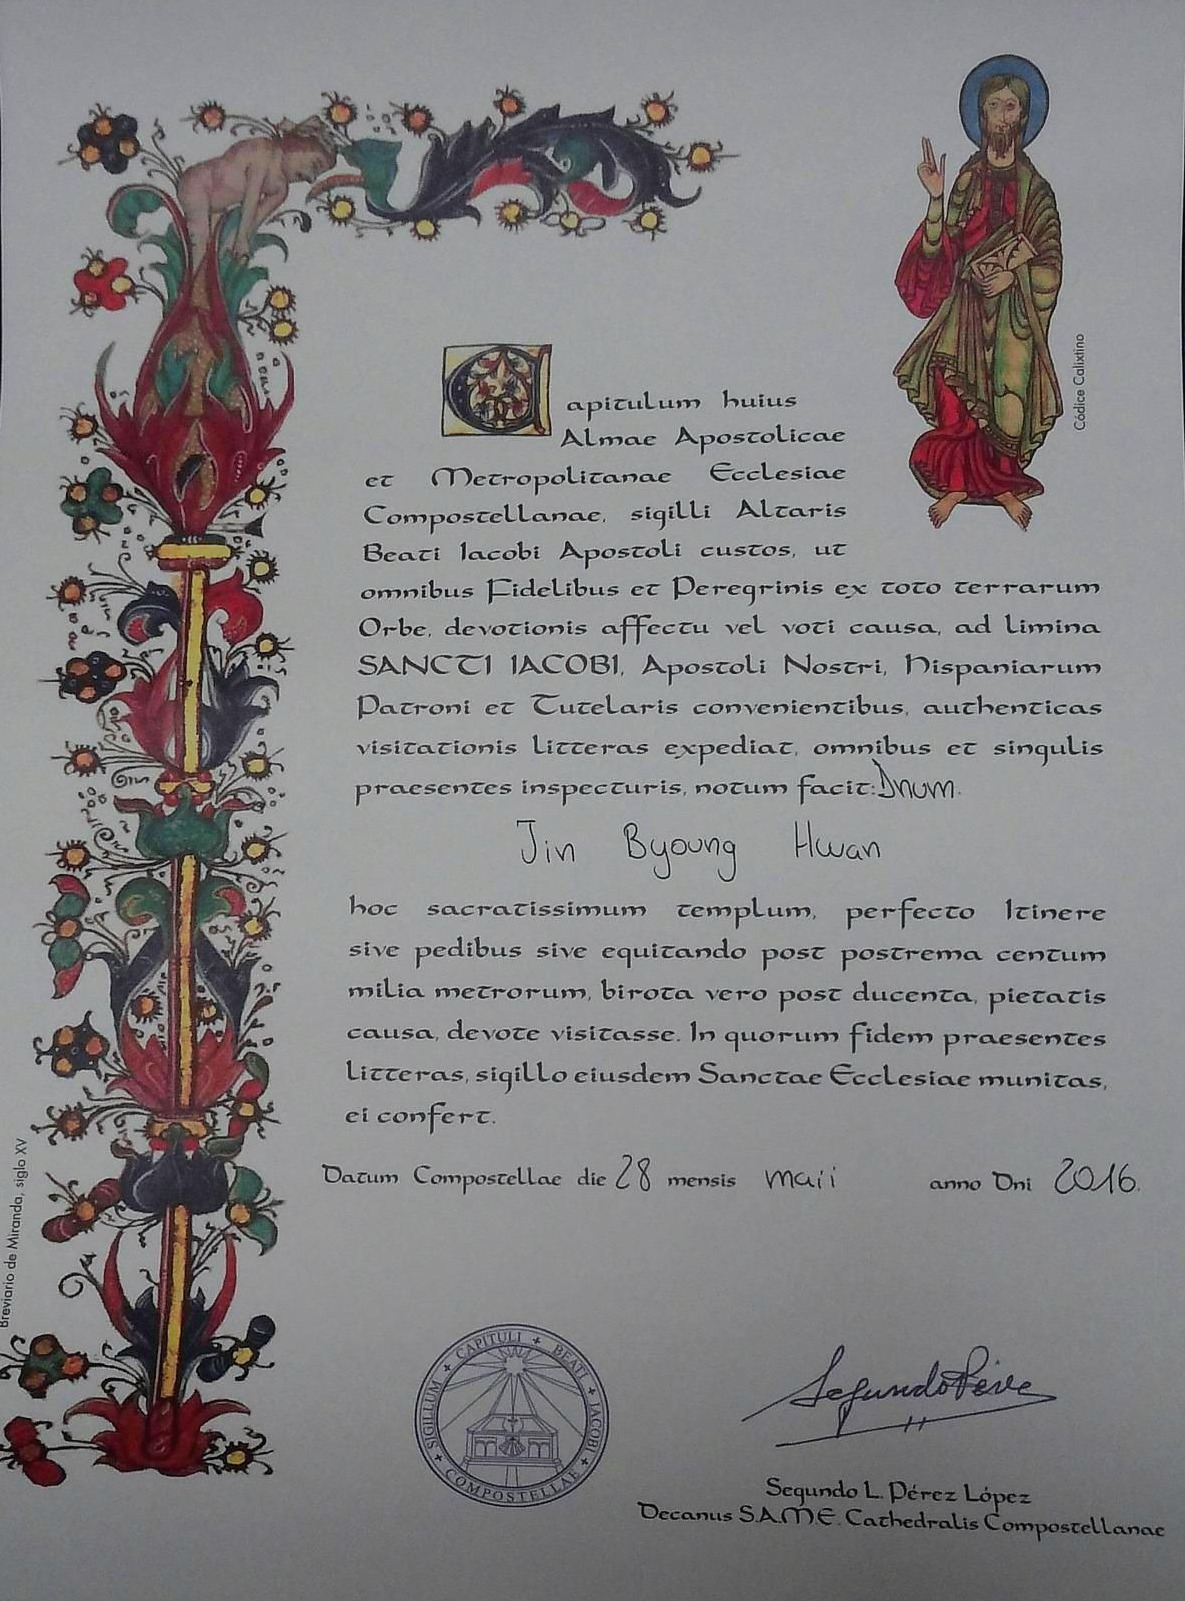 Capitulum huius
Almae Apostolicae
et Metropolitanae Ecclesiae
Compostellanae, sigilli Altaris
Beati Iacobi Apostoli custos, ut
omnibus Fidelibus et Peregrinis ex toto terrarum
Orbe, devotionis affectu vel voti causa, ad limina
SANCTI IACOBI, Apostoli Nostri, Hispaniarum
Patroni et Tutelaris convenientibus, authenticas
visitationis litteras expediat, omnibus et singulis
praesentes inspecturis, notum facit: Dnum.
Jin Byoung Hwan
hoc sacratissimum templum, perfecto Itinere
sive pedibus sive equitando post postrema centum
milia metrorum, birota vero post ducenta, pietatis
causa, devote visitasse. In quorum fidem praesentes
litteras, sigillo eiusdem Sanctae Ecclesiae munitas,
ei confert.
Datum Compostellae die 28 mensis maii anno Dni 2016.
Códice Calixtino
Breviario de Miranda, siglo XV
SIGILLUM + CAPITULI + BEATI + IACOBI + COMPOSTELLAE +
Segundo Pérez
Segundo L. Pérez López
Decanus S.A.M.E. Cathedralis Compostellanae